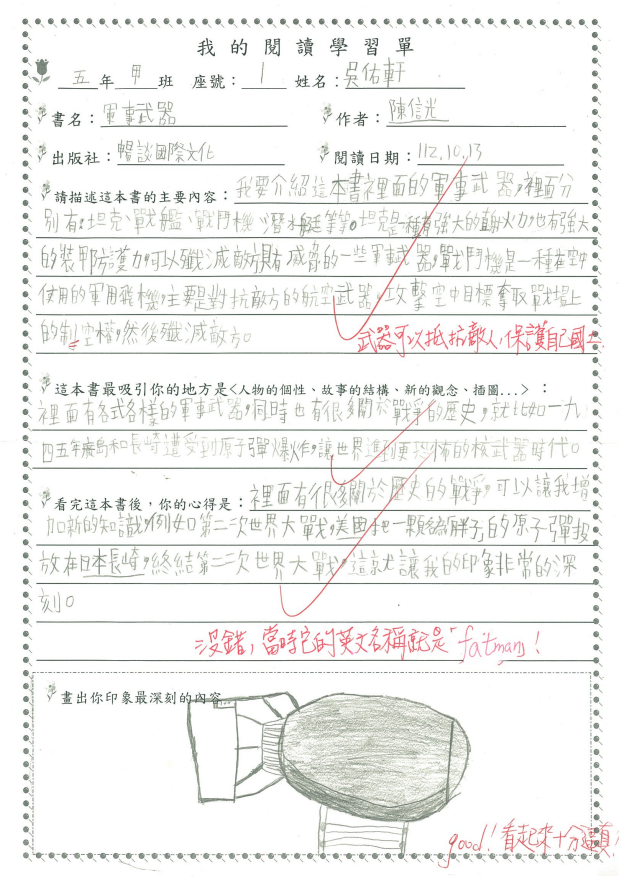 我的閱讀學習單
五年甲班 座號：1 姓名：吳佑軒
書名：軍事武器 作者：陳信光
出版社：暢談國際文化 閱讀日期：112.10.13
請描述這本書的主要內容：我要介紹這本書裡面的軍事武器，裡面分
別有：坦克、戰艦、戰鬥機、潛水艇等等。坦克是種有強大的火力，也有強大
的裝甲防護力，可以殲滅敵方具有威脅的一些軍事武器，戰鬥機是一種在空中
使用的軍用飛機，主要是對抗敵方的航空武器，攻擊空中目標奪取戰場上
的制空權，然後殲滅敵方。
武器可以抵抗敵人，保護自己國土
這本書最吸引你的地方是<人物的個性、故事的結構、新的觀念、插圖...>：
裡面有各式各樣的軍事武器，同時也有很多關於戰爭的歷史，就比如一九
四五年廣島和長崎遭受到原子彈爆炸，讓世界進到更恐怖的核武器時代。
看完這本書後，你的心得是：裡面有很多關於歷史的戰爭，可以讓我增
加新的知識，例如第二次世界大戰，美國把一顆名為胖子的原子彈投
放在日本長崎，終結第二次世界大戰，這就讓我的印象非常的深
刻。
沒錯，當時它的英文名稱就是「fatman」！
畫出你印象最深刻的內容
good！看起來十分逼真